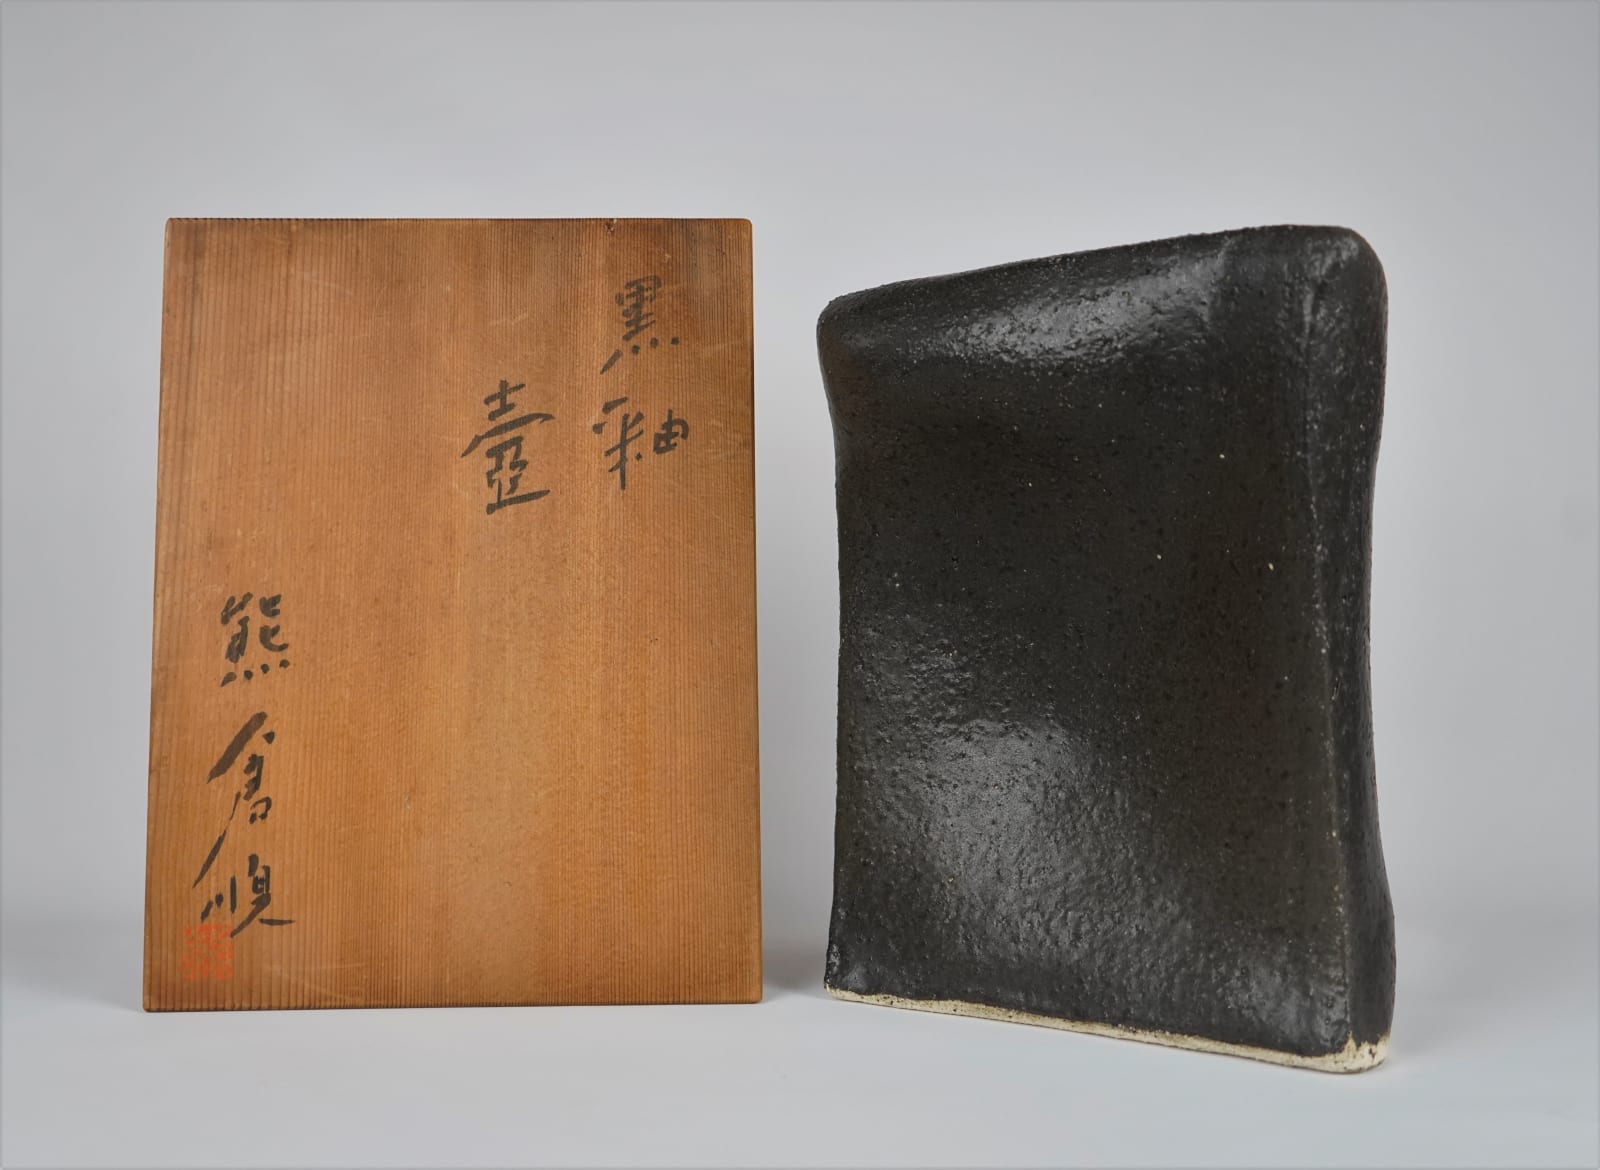 黒釉
壺
熊倉順